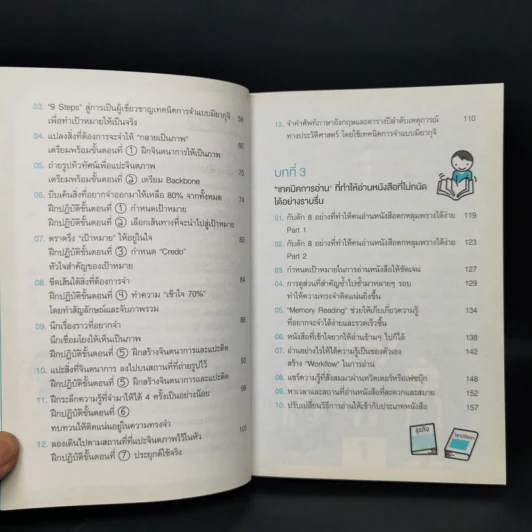 03. "9 Steps" สู่การเป็นผู้เชี่ยวชาญเทคนิคการจำแบบมิยากูจิ 58
เพื่อทำเป้าหมายให้เป็นจริง
04. แปลงสิ่งที่ต้องการจะจำให้ "กลายเป็นภาพ" 65
เตรียมพร้อมขั้นตอนที่ 1 ฝึกจินตนาการให้เป็นภาพ
05. ถ่ายรูปทิวทัศน์เพื่อแปะจินตภาพ 70
เตรียมพร้อมขั้นตอนที่ 2 เตรียม Backbone
06. บีบเค้นสิ่งที่อยากจำออกมาให้เหลือ 80% จากทั้งหมด 74
ฝึกปฏิบัติขั้นตอนที่ 1 กำหนดเป้าหมาย
ฝึกปฏิบัติขั้นตอนที่ 2 เลือกเส้นทางที่จะนำไปสู่เป้าหมาย
07. ตราตรึง "เป้าหมาย" ให้อยู่ในใจ 80
ฝึกปฏิบัติขั้นตอนที่ 3 กำหนด "Credo"
หัวใจสำคัญของเป้าหมาย
08. ขีดเส้นใต้สิ่งที่ต้องการจำ 84
ฝึกปฏิบัติขั้นตอนที่ 4 ทำความ "เข้าใจ 70%"
โดยทำสัญลักษณ์และจับภาพรวม
09. นึกเรื่องราวที่อยากจำ
นึกเชื่อมโยงให้เห็นเป็น
ฝึกปฏิบัติขั้นตอนที่ 5 ฝึกสร้างจินตนาการและแปะติด
10. แปะสิ่งที่จินตนาการ ลงไปบนสถานที่ที่ถ่ายรูปไว้
ฝึกปฏิบัติขั้นตอนที่ 5 ฝึกสร้างจินตนาการและแปะติด
11. ฝึกระลึกความรู้ที่จำมาให้ได้ 4 ครั้งเป็นอย่างน้อย
ฝึกปฏิบัติขั้นตอนที่ 6
ทบทวนให้ติดแน่นอยู่ในความทรงจำ
12. ลองเดินไปตามสถานที่ที่แปะจินตภาพไว้ในหัว 105
ฝึกปฏิบัติขั้นตอนที่ 7 ประยุกต์ใช้จริง
13. จำคำศัพท์ภาษาอังกฤษและตารางปีลำดับเหตุการณ์ 110
ทางประวัติศาสตร์ โดยใช้เทคนิคการจำแบบมิยากูจิ
บทที่ 3
"เทคนิคการอ่าน" ที่ทำให้อ่านหนังสือที่ไม่ถนัด
ได้อย่างราบรื่น
01. กับดัก 8 อย่างที่ทำให้คนอ่านหนังสือตกหลุมพรางได้ง่าย 119
Part 1
02. กับดัก 8 อย่างที่ทำให้คนอ่านหนังสือตกหลุมพรางได้ง่าย 123
Part 2
03. กำหนดเป้าหมายในการอ่านหนังสือให้ชัดเจน 127
04. การดูส่วนที่สำคัญซ้ำไปซ้ำมาหลายๆ รอบ 131
ทำให้ความทรงจำติดแน่นยิ่งขึ้น
05. "Memory Reading" ช่วยให้เก็บเกี่ยวความรู้ 134
ที่อยากจะจำได้ง่ายและรวดเร็วขึ้น
06. หนังสือที่เข้าใจยากให้อ่านข้ามๆ ไปก็ได้ 138
07. อ่านอย่างไรให้ได้ความรู้เป็นของตัวเอง 142
สร้าง "Workflow" ในการอ่าน
08. แชร์ความรู้ที่สั่งสมมาผ่านทวิตเตอร์หรือเฟซบุ๊ก 148
09. หาเวลาและสถานที่อ่านหนังสือที่สะดวกและสบาย 152
10. ปรับเปลี่ยนวิธีการอ่านให้เข้ากับประเภทหนังสือ 157
ธุรกิจ